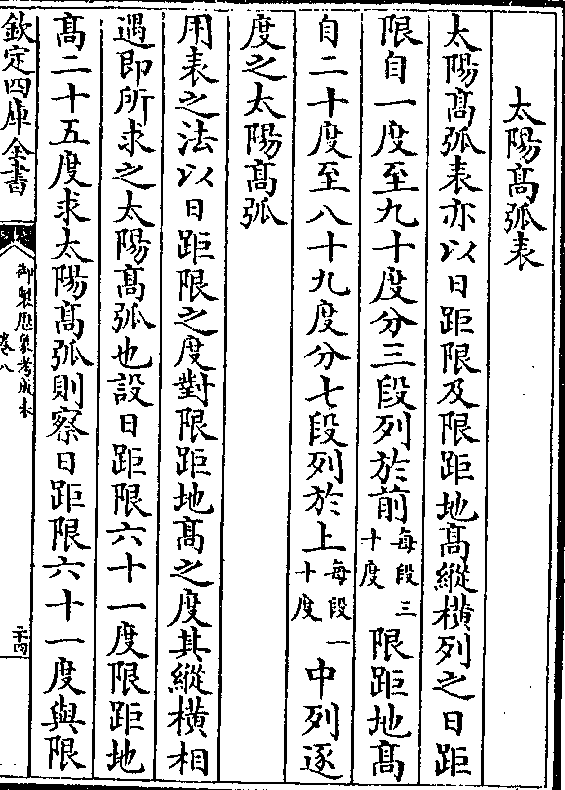 太陽髙弧表
太陽髙弧表亦以日距限及限距地髙縱橫列之日距
限自一度至九十度分三段列於前每段三十度限距地髙
自二十度至八十九度分七段列於上每段一十度中列逐
度之太陽髙弧
用表之法以日距限之度對限距地髙之度其縱橫相
遇即所求之太陽髙弧也設日距限六十一度限距地
髙二十五度求太陽髙弧則察日距限六十一度與限
欽定四庫全書
御製厯象考成表
卷八
二十四